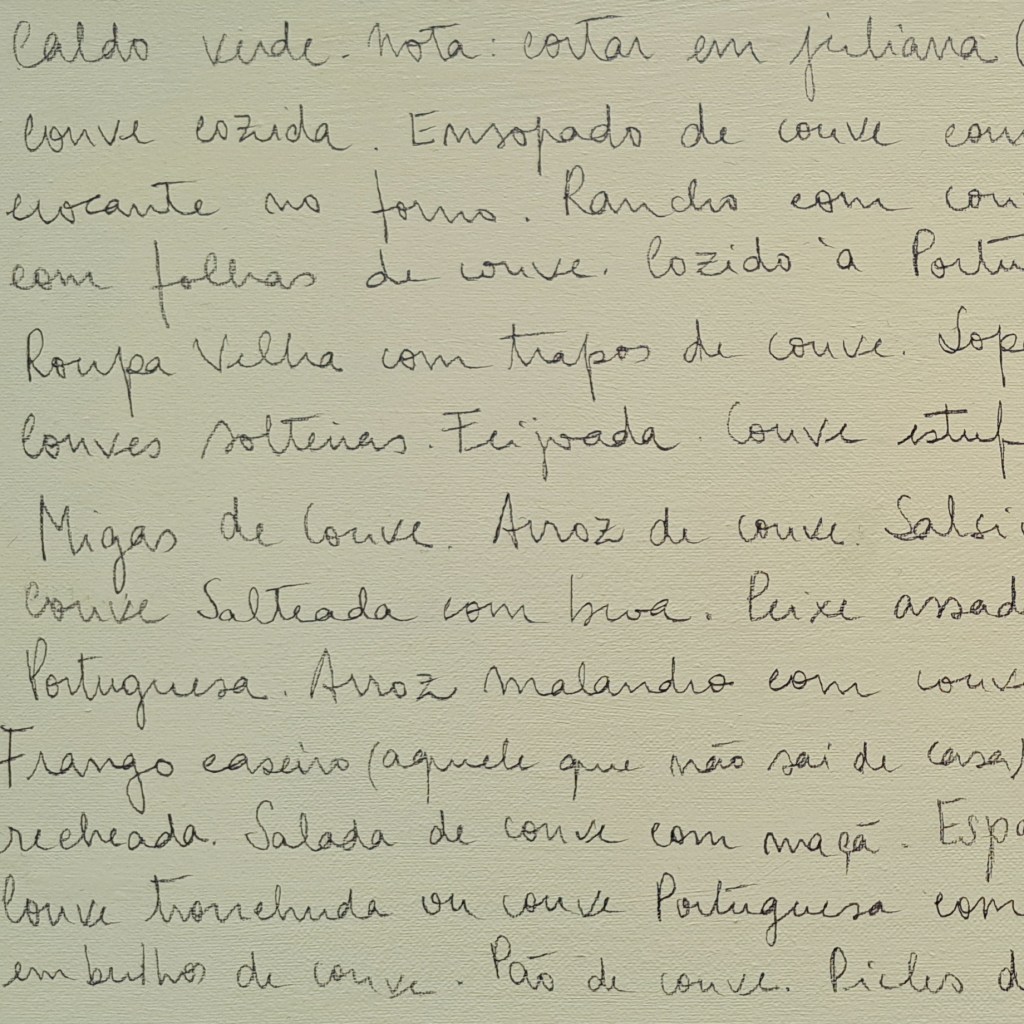 Caldo verde. Nota: cortar em juliana (
couve cozida. Ensopado de couve com
crocante no forno. Rancho com cou
com folhas de couve. Cozido à Portu
Roupa Velha com trapos de couve. Sopa
Couves solteiras. Feijoada. Couve estuf
Migas de Couve. Arroz de couve. Salsi
Couve Salteada com broa. Peixe assad
Portuguesa. Arroz malandro com couve
Frango caseiro (aquele que não sai de casa)
recheada. Salada de couve com maçã. Espa
Couve tronchuda ou couve Portuguesa com
embrulhos de couve. Pão de couve. Picles d